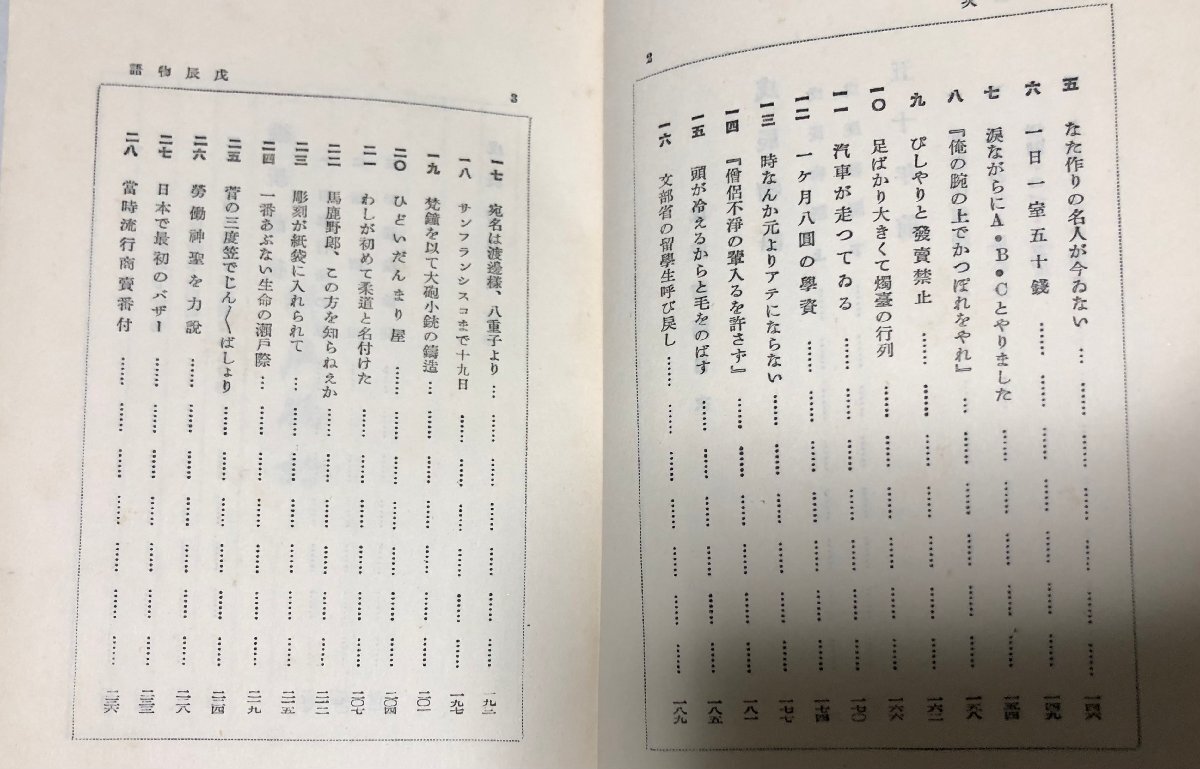 2
五 なた作りの名人が今ゐない …………………… 一四六
六 一日一室五十錢 …………………… 一四九
七 涙ながらにA・B・Cとやりました …………………… 一五四
八 『俺の腕の上でかつぽれをやれ』 …………………… 一五八
九 ぴしやりと發賣禁止 …………………… 一六二
一〇 足ばかり大きくて燭臺の行列 …………………… 一六六
一一 汽車が走つてゐる …………………… 一七〇
一二 一ケ月八圓の學資 …………………… 一七四
一三 時なんか元よりアテにならない …………………… 一七七
一四 『僧侶不淨の輩入るを許さず』 …………………… 一八一
一五 頭が冷えるからと毛をのばす …………………… 一八五
一六 文部省の留學生呼び戻し …………………… 一八九
戊辰物語
3
一七 宛名は渡邊樣、八重子より …………………… 一九二
一八 サンフランシスコまで十九日 …………………… 一九七
一九 梵鐘を以て大砲小銃の鑄造 …………………… 二〇一
二〇 ひどいだんまり屋 …………………… 二〇四
二一 わしが初めて柔道と名付けた …………………… 二〇七
二二 馬鹿野郎、この方を知らねえか …………………… 二一二
二三 彫刻が紙袋に入れられて …………………… 二一五
二四 一番あぶない生命の瀨戸際 …………………… 二一九
二五 菅の三度笠でじん〳〵ばしより …………………… 二二四
二六 勞働神聖を力說 …………………… 二二八
二七 日本で最初のバザー …………………… 二三二
二八 當時流行商賣番付 …………………… 二三六